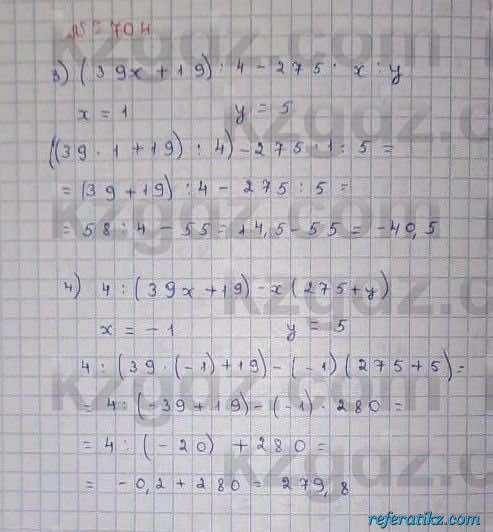 № 704
3) (39x + 19) : 4 - 275 · x : y
x = 1 y = 5
((39 · 1 + 19) : 4) - 275 · 1 : 5 =
= (39 + 19) : 4 - 275 : 5 =
= 58 : 4 - 55 = 14,5 - 55 = -40,5
4) 4 : (39x + 19) - x (275 + y)
x = -1 y = 5
4 : (39 · (-1) + 19) - (-1) (275 + 5) =
= 4 : (-39 + 19) - (-1) · 280 =
= 4 : (-20) + 280 =
= -0,2 + 280 = 279,8
referatikz.com